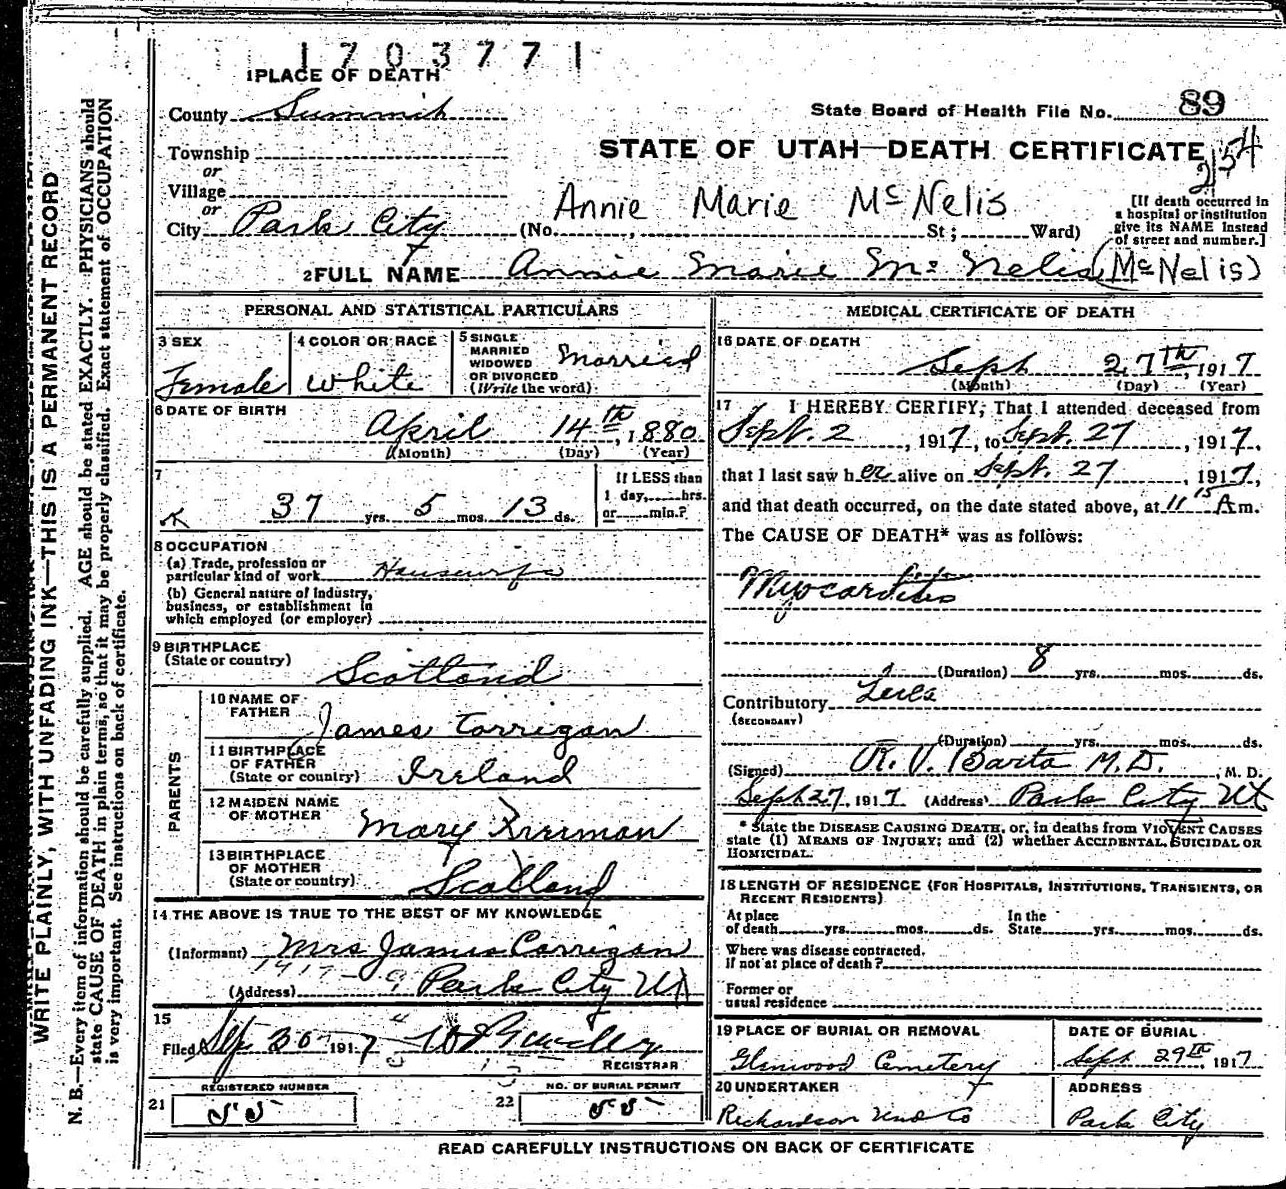 1703771
1 PLACE OF DEATH
County Summit
Township
or
Village
or
City Park City
State Board of Health File No. 89
STATE OF UTAH—DEATH CERTIFICATE
254
Annie Marie McNelis
(No. , St; Ward)
[If death occurred in
a hospital or institution
give its NAME instead
of street and number.]
2 FULL NAME Annie Marie Mc Nelis (McNelis)
PERSONAL AND STATISTICAL PARTICULARS
3 SEX
Female
4 COLOR OR RACE
White
5 SINGLE
MARRIED
WIDOWED
OR DIVORCED
(Write the word)
Married
6 DATE OF BIRTH
April 14th, 1880
(Month) (Day) (Year)
7
37 yrs. 5 mos. 13 ds.
If LESS than
1 day, hrs.
or min.?
8 OCCUPATION
(a) Trade, profession or
particular kind of work Housewife
(b) General nature of Industry,
business, or establishment in
which employed (or employer)
9 BIRTHPLACE
(State or country) Scotland
PARENTS
10 NAME OF
FATHER James Corrigan
11 BIRTHPLACE
OF FATHER
(State or country) Ireland
12 MAIDEN NAME
OF MOTHER Mary
13 BIRTHPLACE
OF MOTHER
(State or country) Scotland
14 THE ABOVE IS TRUE TO THE BEST OF MY KNOWLEDGE
(Informant) Mrs James Corrigan
(Address) Park City Ut
15
Filed Sep 30 1917
REGISTRAR
REGISTERED NUMBER
21 55
NO. OF BURIAL PERMIT
22 55
MEDICAL CERTIFICATE OF DEATH
16 DATE OF DEATH
Sept 27th, 1917
(Month) (Day) (Year)
17 I HEREBY CERTIFY, That I attended deceased from
Sept. 2, 1917, to Sept. 27, 1917,
that I last saw her alive on Sept. 27, 1917,
and that death occurred, on the date stated above, at 11 15 A m.
The CAUSE OF DEATH* was as follows:
Myocarditis
(Duration) 8 yrs. mos. ds.
Contributory
(SECONDARY)
(Duration) yrs. mos. ds.
(Signed) R. V. Barta M.D., M. D.
Sept 27, 1917 (Address) Park City Ut
* State the DISEASE CAUSING DEATH, or, in deaths from VIOLENT CAUSES
state (1) MEANS OF INJURY; and (2) whether ACCIDENTAL, SUICIDAL OR
HOMICIDAL.
18 LENGTH OF RESIDENCE (FOR HOSPITALS, INSTITUTIONS, TRANSIENTS, OR
RECENT RESIDENTS)
At place In the
of death yrs. mos. ds. State yrs. mos. ds.
Where was disease contracted,
If not at place of death?
Former or
usual residence
19 PLACE OF BURIAL OR REMOVAL
Glenwood Cemetery
DATE OF BURIAL
Sept 29th, 1917
20 UNDERTAKER
Richardson Und Co
ADDRESS
Park City
READ CAREFULLY INSTRUCTIONS ON BACK OF CERTIFICATE
WRITE PLAINLY, WITH UNFADING INK—THIS IS A PERMANENT RECORD
N. B.—Every item of information should be carefully supplied. AGE should be stated EXACTLY. PHYSICIANS should
state CAUSE OF DEATH in plain terms, so that it may be properly classified. Exact statement of OCCUPATION
is very important. See instructions on back of certificate.